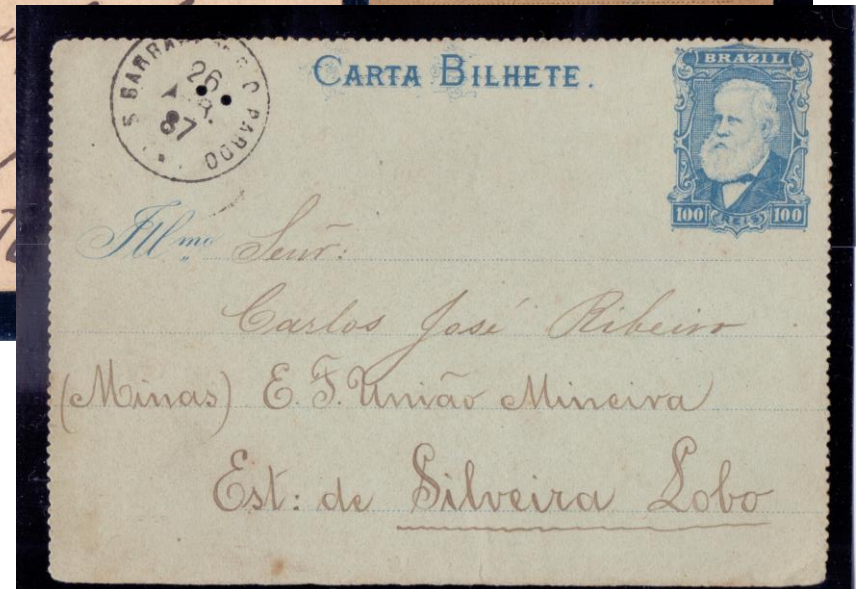 S BARRA DO RIO PARDO
26
87
CARTA BILHETE.
BRAZIL
100 REIS 100
Illmo Senr:
Carlos José Ribeiro
(Minas) E. F. União Mineira
Est: de Silveira Lobo